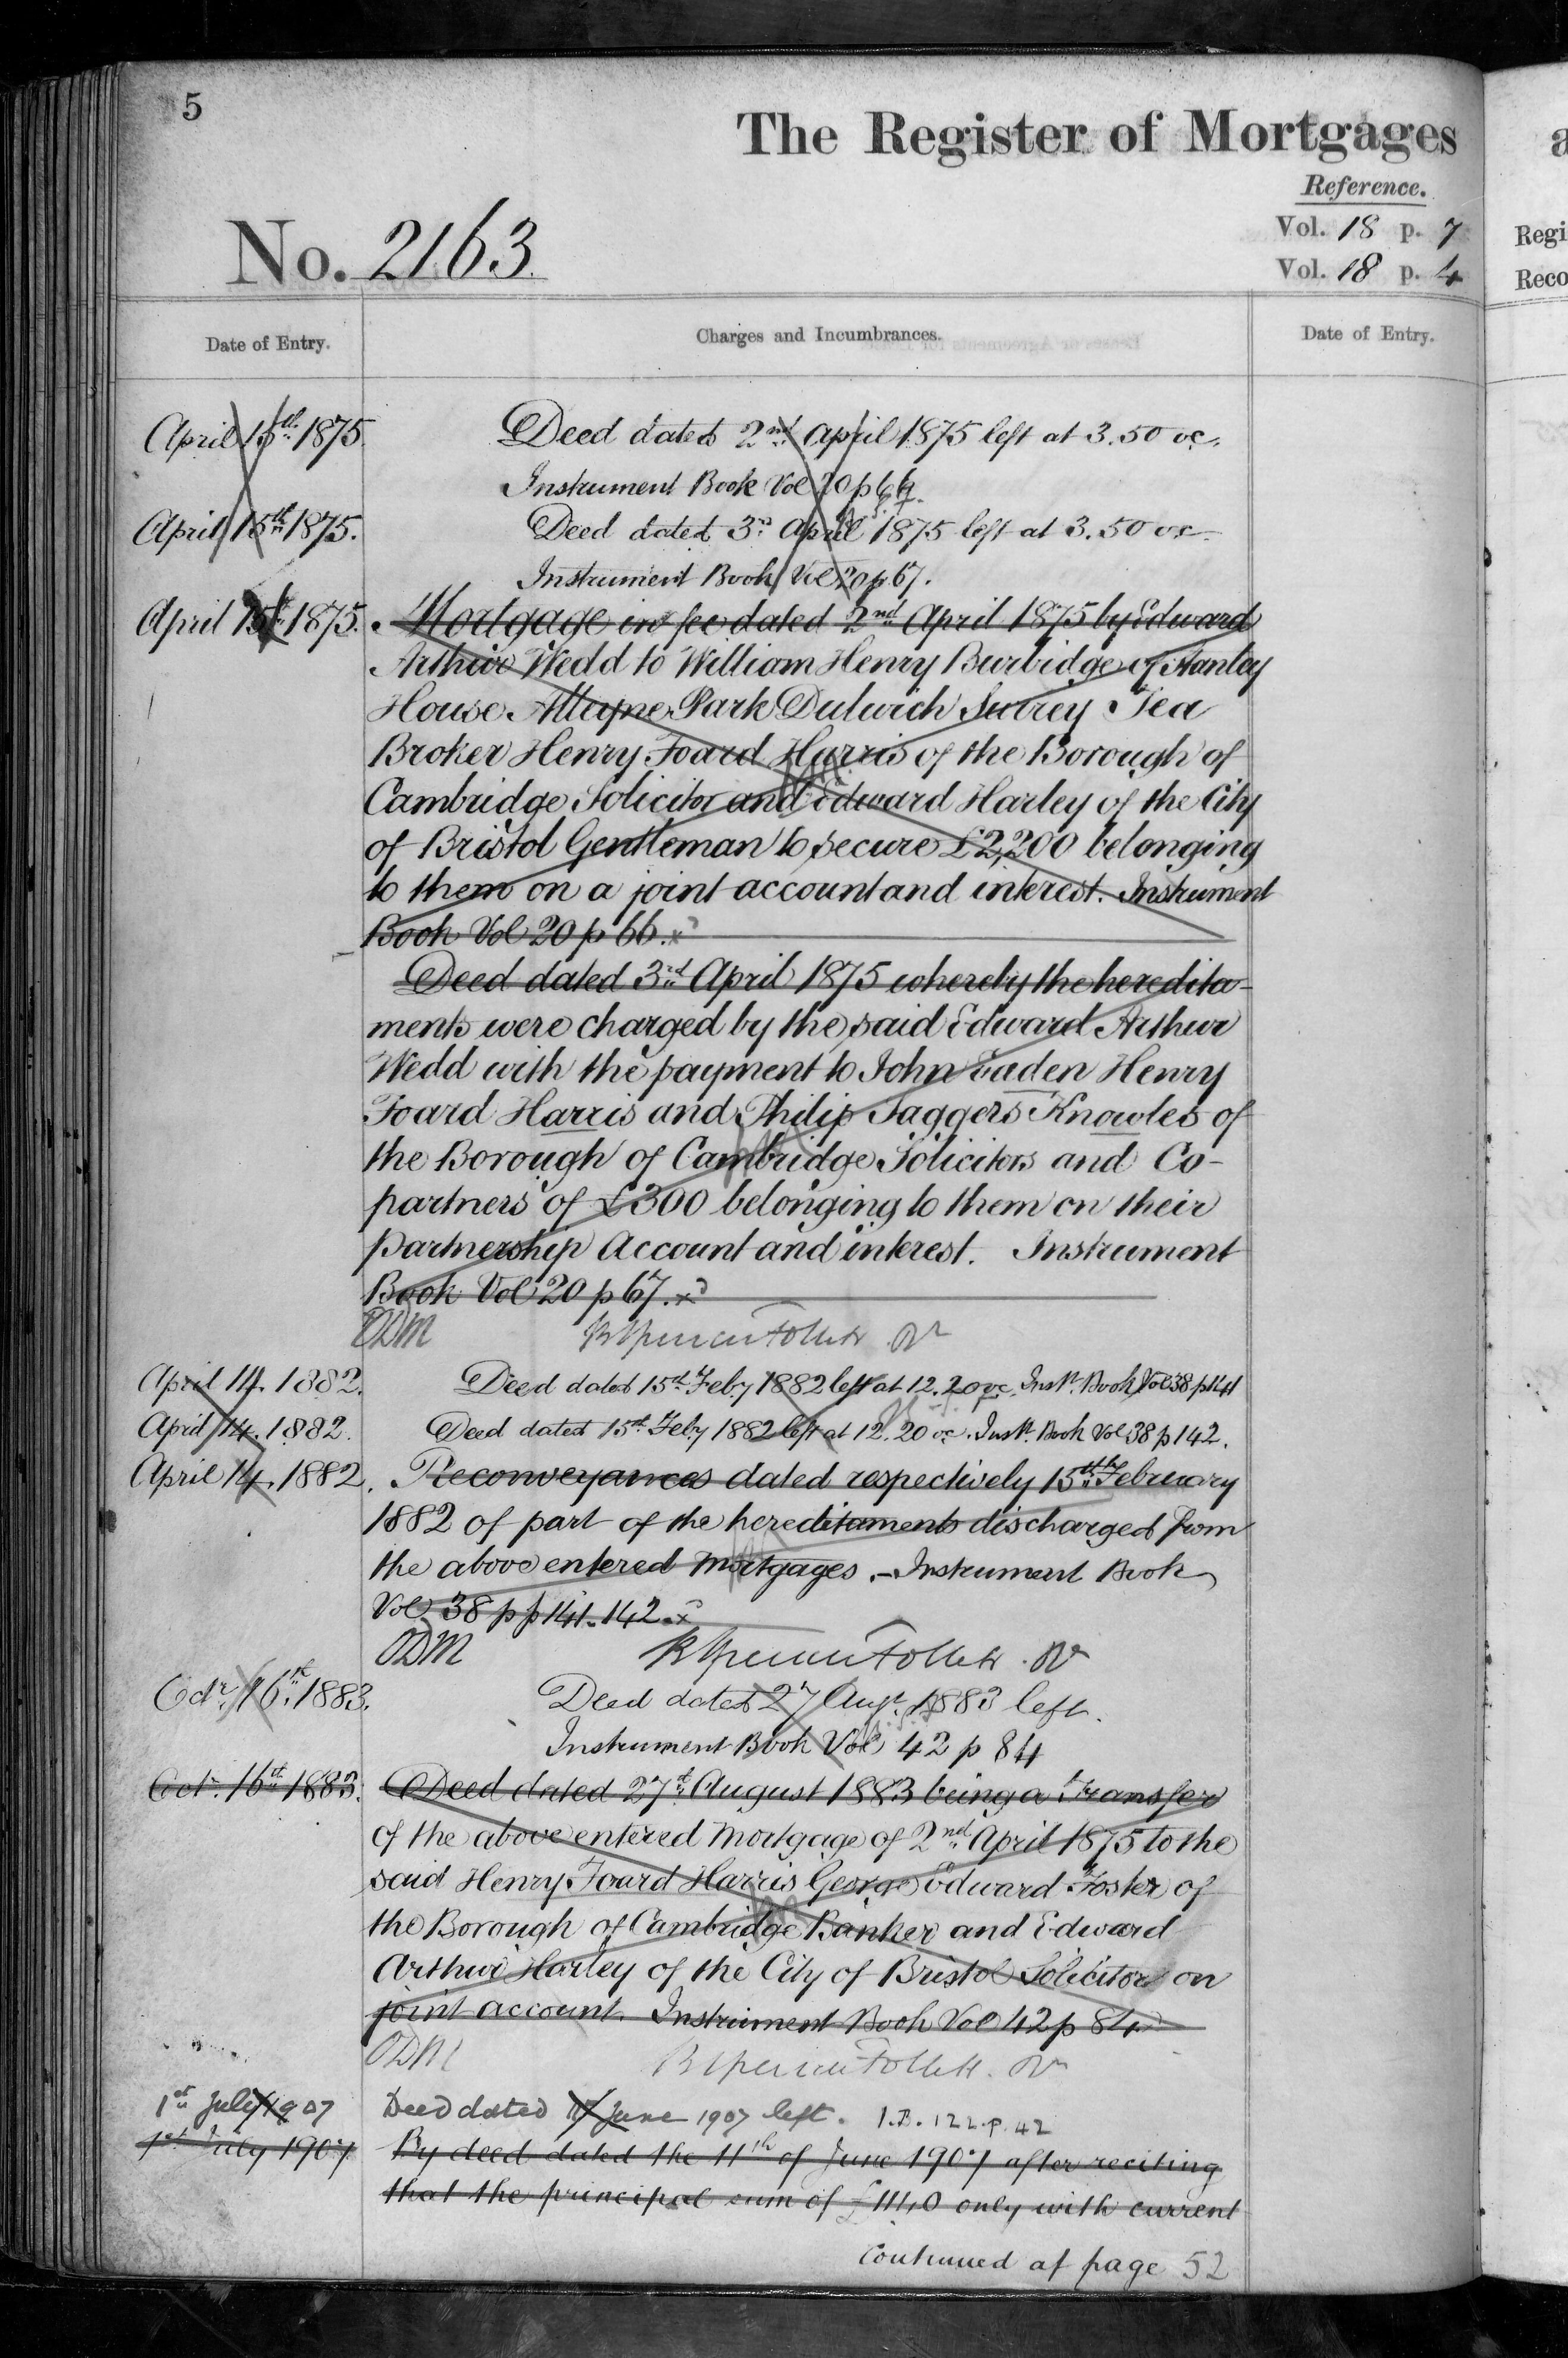 5
The Register of Mortgages
Reference.
No. 2163
Vol. 18 p. 7
Vol. 18 p. 4
Regi
Reco
Date of Entry.
Charges and Incumbrances.
Date of Entry.
April 15th 1875. Deed dated 2nd April 1875 left at 3.50 oc.
Instrument Book Vol 20 p 66
April 15th 1875. Deed dated 3rd April 1875 left at 3.50 oc
Instrument Book Vol 20 p 67.
April 15th 1875. Mortgage in fee dated 2nd April 1875 by Edward
Arthur Wedd to William Henry Burbidge of Hanley
House Alleyne Park Dulwich Surrey Tea
Broker Henry Foard Harris of the Borough of
Cambridge Solicitor and Edward Harley of the City
of Bristol Gentleman to secure £2,200 belonging
to them on a joint account and interest. Instrument
Book Vol 20 p 66.
Deed dated 3rd April 1875 whereby the heredita-
ments were charged by the said Edward Arthur
Wedd with the payment to John Eaden Henry
Foard Harris and Philip Jaggers Knowles of
the Borough of Cambridge Solicitors and Co-
partners of £300 belonging to them on their
partnership Account and interest. Instrument
Book Vol 20 p 67.
ODM
April 14. 1882. Deed dated 15th Feby 1882 left at 12.20 oc. Inst. Book Vol 38 p 141
April 14. 1882. Deed dated 15th Feby 1882 left at 12.20 oc. Inst. Book Vol 38 p 142.
April 14. 1882. Reconveyances dated respectively 15th February
1882 of part of the hereditaments discharged from
the above entered Mortgages. - Instrument Book
Vol. 38 pp 141. 142.
ODM
Octr. 16th 1883. Deed dated 27 Augt. 1883 left.
Instrument Book Vol 42 p 84
Octr. 16th 1883. Deed dated 27th August 1883 being a Transfer
of the above entered Mortgage of 2nd April 1875 to the
said Henry Foard Harris George Edward Foster of
the Borough of Cambridge Banker and Edward
Arthur Harley of the City of Bristol Solicitor on
joint account. Instrument Book Vol 42 p 84
ODM
1st July 1907 Deed dated 11 June 1907 left. I.B. 122. p. 42
1st July 1907 By deed dated the 11th of June 1907 after reciting
that the principal sum of £1140 only with current
Continued at page 52